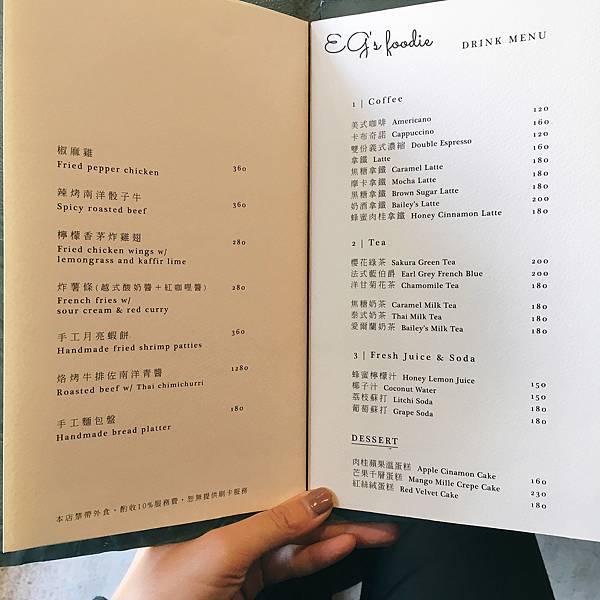 椒麻雞
Fried pepper chicken 360
辣烤南洋骰子牛
Spicy roasted beef 360
檸檬香茅炸雞翅 280
Fried chicken wings w/
lemongrass and kaffir lime
炸薯條(越式酸奶醬+紅咖哩醬) 280
French fries w/
sour cream & red curry
手工月亮蝦餅 360
Handmade fried shrimp patties
烙烤牛排佐南洋青醬 1280
Roasted beef w/ Thai chimichurri
手工麵包盤 180
Handmade bread platter
本店禁帶外食、酌收10%服務費，恕無提供刷卡服務
EG's foodie DRINK MENU
1 | Coffee
美式咖啡 Americano 120
卡布奇諾 Cappuccino 160
雙份義式濃縮 Double Espresso 120
拿鐵 Latte 160
焦糖拿鐵 Caramel Latte 180
摩卡拿鐵 Mocha Latte 180
黑糖拿鐵 Brown Sugar Latte 180
奶酒拿鐵 Bailey's Latte 200
蜂蜜肉桂拿鐵 Honey Cinnamon Latte 180
2 | Tea
櫻花綠茶 Sakura Green Tea 200
法式藍伯爵 Earl Grey French Blue 200
洋甘菊花茶 Chamomile Tea 180
焦糖奶茶 Caramel Milk Tea 180
泰式奶茶 Thai Milk Tea 180
愛爾蘭奶茶 Bailey's Milk Tea 180
3 | Fresh Juice & Soda
蜂蜜檸檬汁 Honey Lemon Juice 150
椰子汁 Coconut Water 150
荔枝蘇打 Litchi Soda 180
葡萄蘇打 Grape Soda 180
DESSERT
肉桂蘋果溫蛋糕 Apple Cinamon Cake 160
芒果千層蛋糕 Mango Mille Crepe Cake 230
紅絲絨蛋糕 Red Velvet Cake 180